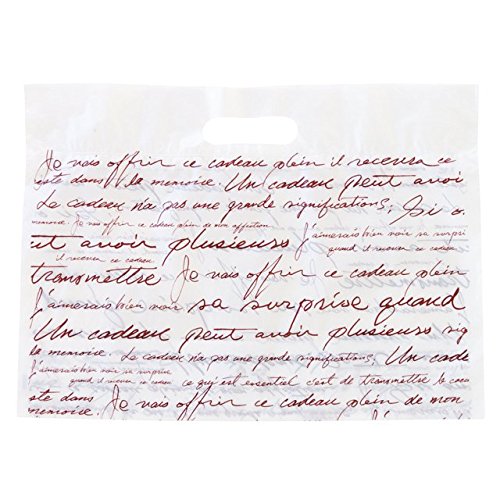 Je vais offrir ce cadeau plein il recevra ce
ste dans la memoire. Un cadeau peut avoi
Le cadeau n'a pas une grande significations, Si a
memoire. Je vais offrir ce cadeau plein de mon affection j'aimerais bien voir sa surpri
ut avoir plusieurs quand il recever ce cadeau
il recevra ce cadeau
transmettre Je vais offrir ce cadeau plein
j'aimerais bien voir sa surprise quand
Un cadeau peut avoir plusieurs sig
la memoire. Le cadeau n'a pas une grande significations, Un cade
j'aimerais bien voir sa surprise
quand il recever ce cadeau ce qui est essentiel c'est de transmettre le
ste dans Je vais offrir ce cadeau plein de mon
memoire.